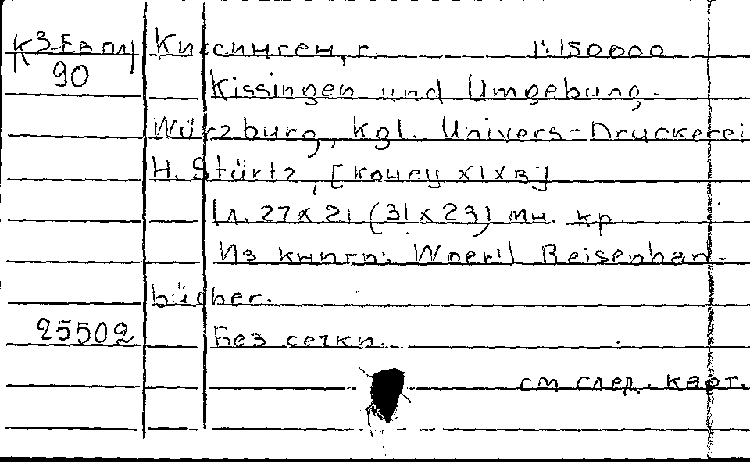 К 3 Ев пл Киссинген, г. 1:150000
90 Kissingen und Umgebung.
Würzburg, Kgl. Univers-Druckerei
H. Stürtz, [конец XIX в]
1 л. 27 х 21 (31 х 23) мн. кр
Из книги: Woerll Reisenhan-
bücher.
25502 Без сетки.
см след. карт.